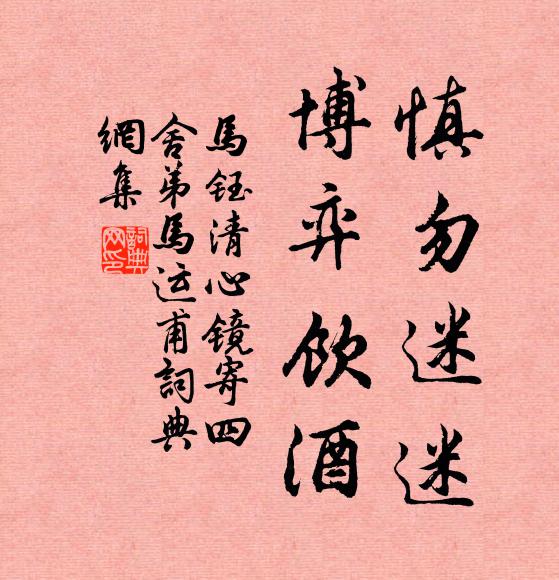 慎勿迷迷
博弈饮酒
馬鈺清心镜寄四
舍弟馬运甫詞典
網集
詞典
网印